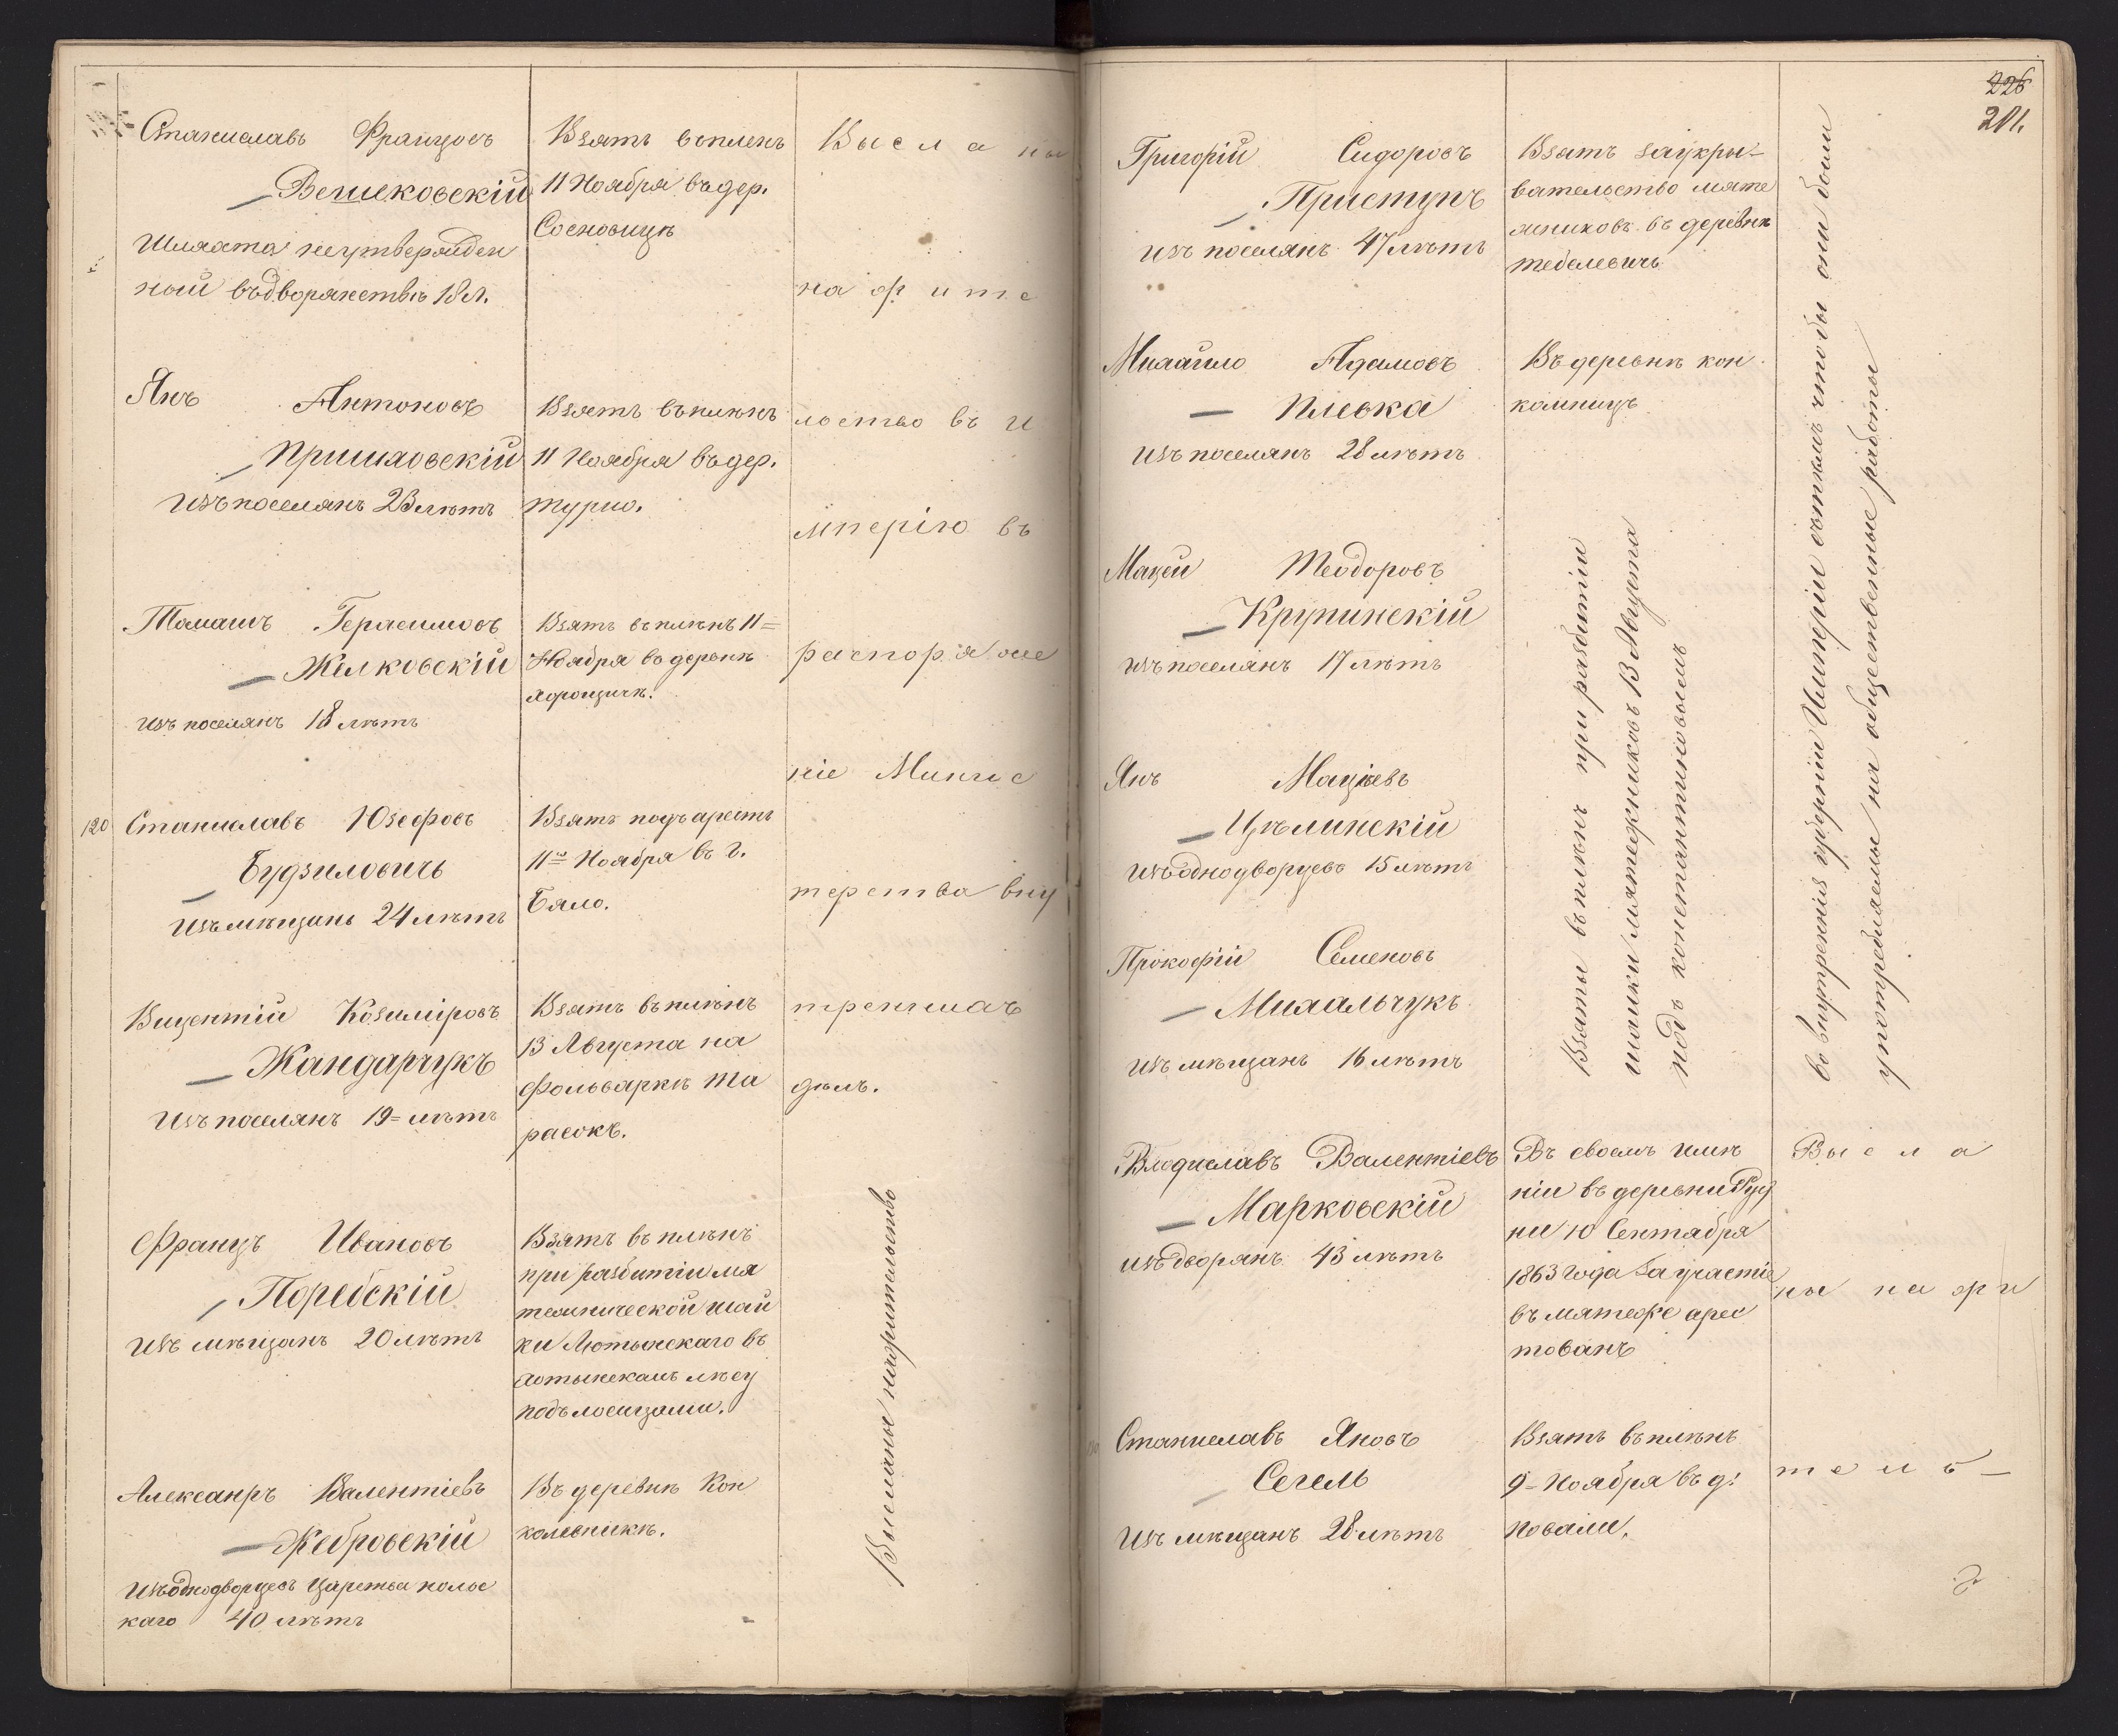 Станиславъ Францовъ
Вешековскій
Шляхта неутвержден
ный въ дворянствѣ 18 л.
Взятъ въ пленъ
11 Ноября въ дер.
Сосновицѣ
Янъ Антоновъ
Пришляовскій
Изъ поселянъ 23 лѣтъ
Взятъ въ плѣнъ
11 Ноября въ дер.
Турно.
Томашъ Герасимовъ
Жилковскій
изъ поселянъ 18 лѣтъ
Взятъ въ плѣнъ 11=
Ноября въ деревнѣ
120
Станиславъ Юзефовъ
Будзиловичь
Изъ мѣщанъ 24 лѣтъ
Взятъ подъ арестъ
11го Ноября въ г.
Бяло.
Вицентій Козиміровъ
Жандарчукъ
Изъ поселянъ 19= лѣтъ
Взятъ въ плѣнъ
13 Августа на
Фольваркѣ Та
расокъ.
Высланы
на жите
льство въ И
мперію въ
распоряже
ніе Минис
терства вну
треннихъ
дѣлъ.
Францъ Ивановъ
Поребскій
Изъ мѣщанъ 20 лѣтъ
Взятъ въ плѣнъ
при разбитіи мя
тежнической шай
ки Лютынскаго въ
лѣсу
подъ Лосицами.
Александръ Валентіевъ
Жебровскій
Изъ однодворцевъ Царства поль
каго 40 лѣтъ
Въ деревнѣ Кон
колевникѣ.
Высланы на жительство
226
211.
Григорій Сидоровъ
Приступъ
изъ поселянъ 47 лѣтъ
Взятъ за укры-
вательство мяте
жниковъ въ деревнѣ
Тебелевичь
Михайло Адамовъ
Плевка
Изъ поселянъ 28 лѣтъ
Въ деревнѣ Кон
комницъ
Мацей Теодоровъ
Крупинскій
изъ поселянъ 17 лѣтъ
Янъ Маціевъ
Цѣлинскій
Изъ однодворцевъ 15 лѣтъ
Прокофій Семеновъ
Михальчукъ
Изъ мѣщанъ 16 лѣтъ
Взяты въ плѣнъ при разбитіи
шайки мятежниковъ 13 Августа
подъ Константиновымъ
во внутреннія губерніи Имперіи съ тѣмъ чтобы они были
употребляемы на общественные работы
Владиславъ Валентіевъ
Марковскій
изъ дворянъ 43 лѣтъ
Въ своемъ имѣ
ніи въ деревни Руд
ни 10 Сентября
1863 года за участіе
въ мятеже арес
тованъ
Станиславъ Яновъ
Сегель
Изъ мѣщанъ 28 лѣтъ
Взятъ въ плѣнъ
9= Ноября въ д:
Высла
ны на жи
тель-